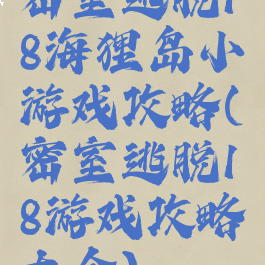 密室逃脱1
8海狸岛小
游戏攻略(
密室逃脱1
8游戏攻略
大全)